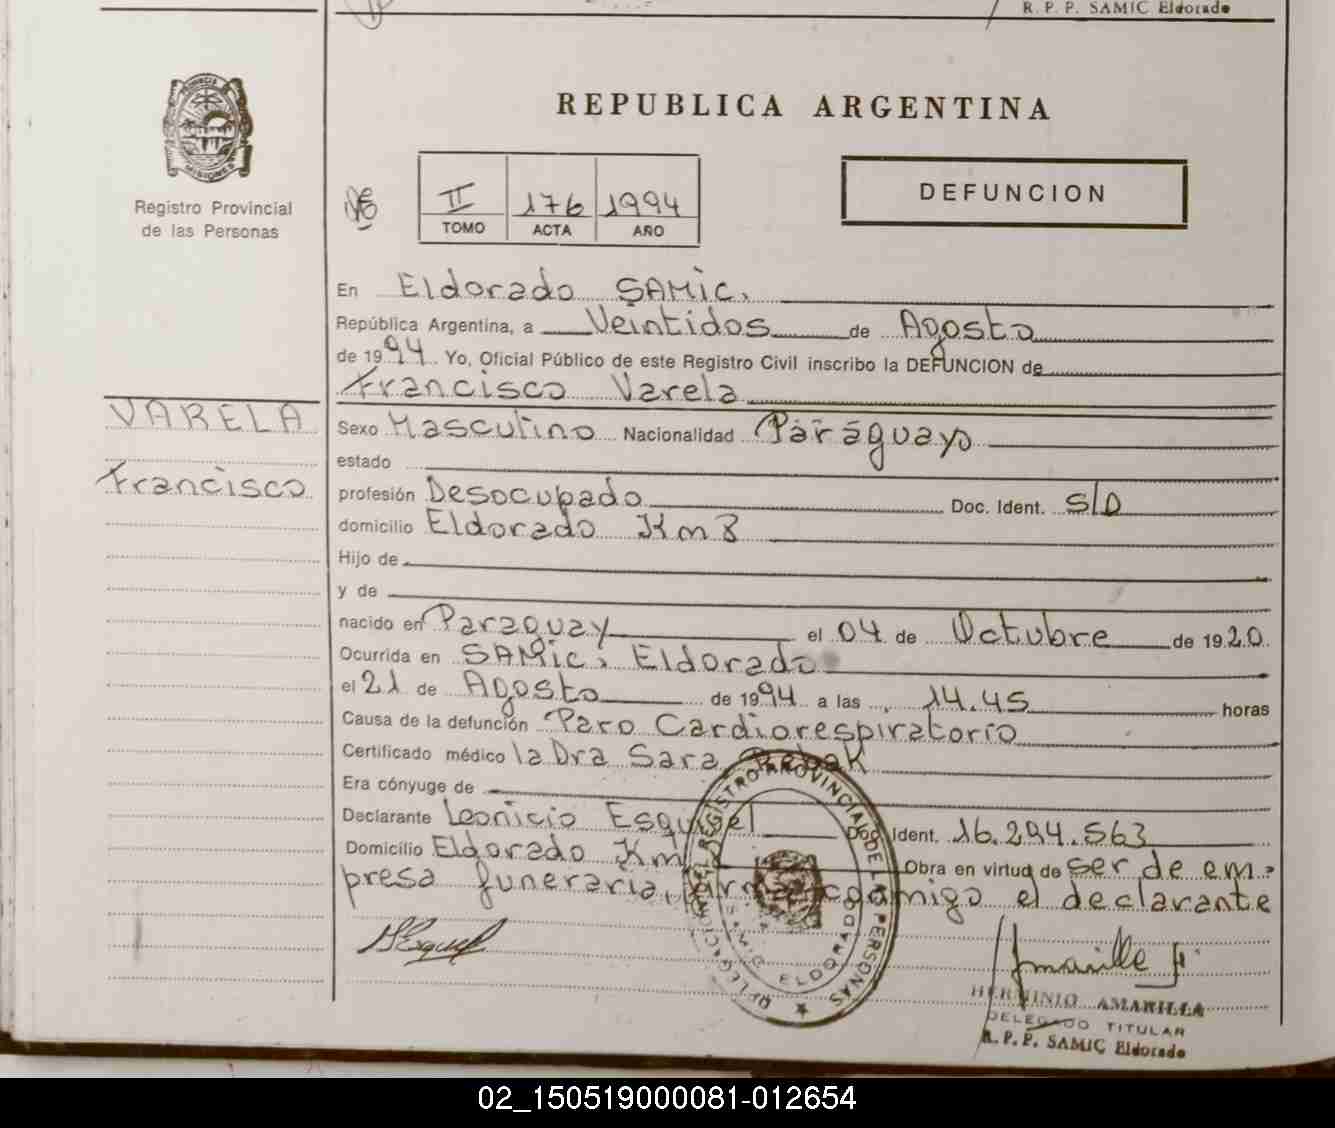 R. P. P. SAMIC Eldorado
PROVINCIA
MISIONES
Registro Provincial
de las Personas
REPUBLICA ARGENTINA
II 176 1994
TOMO ACTA AÑO
DEFUNCION
En Eldorado SAMic,
República Argentina, a Veintidos de Agosto
de 1994 Yo, Oficial Público de este Registro Civil inscribo la DEFUNCION de
Francisco Varela
VARELA
Francisco
Sexo Masculino Nacionalidad Paraguayo
estado
profesión Desocupado Doc. Ident. S/D
domicilio Eldorado Km 8
Hijo de
y de
nacido en Paraguay el 04 de Octubre de 1920
Ocurrida en SAMic, Eldorado
el 21 de Agosto de 1994 a las 14.45 horas
Causa de la defunción Paro Cardiorespiratorio
Certificado médico la Dra Sara
Era cónyuge de
Declarante Leonicio Esquivel Doc. Ident. 16.294.563
Domicilio Eldorado Km Obra en virtud de ser de em-
presa funeraria, firma conmigo el declarante
DELEGACION REGISTRO PROVINCIAL DE LAS PERSONAS
SAMIC ELDORADO
HERMINIO AMARILLA
DELEGADO TITULAR
R. P. P. SAMIC Eldorado
02_150519000081-012654